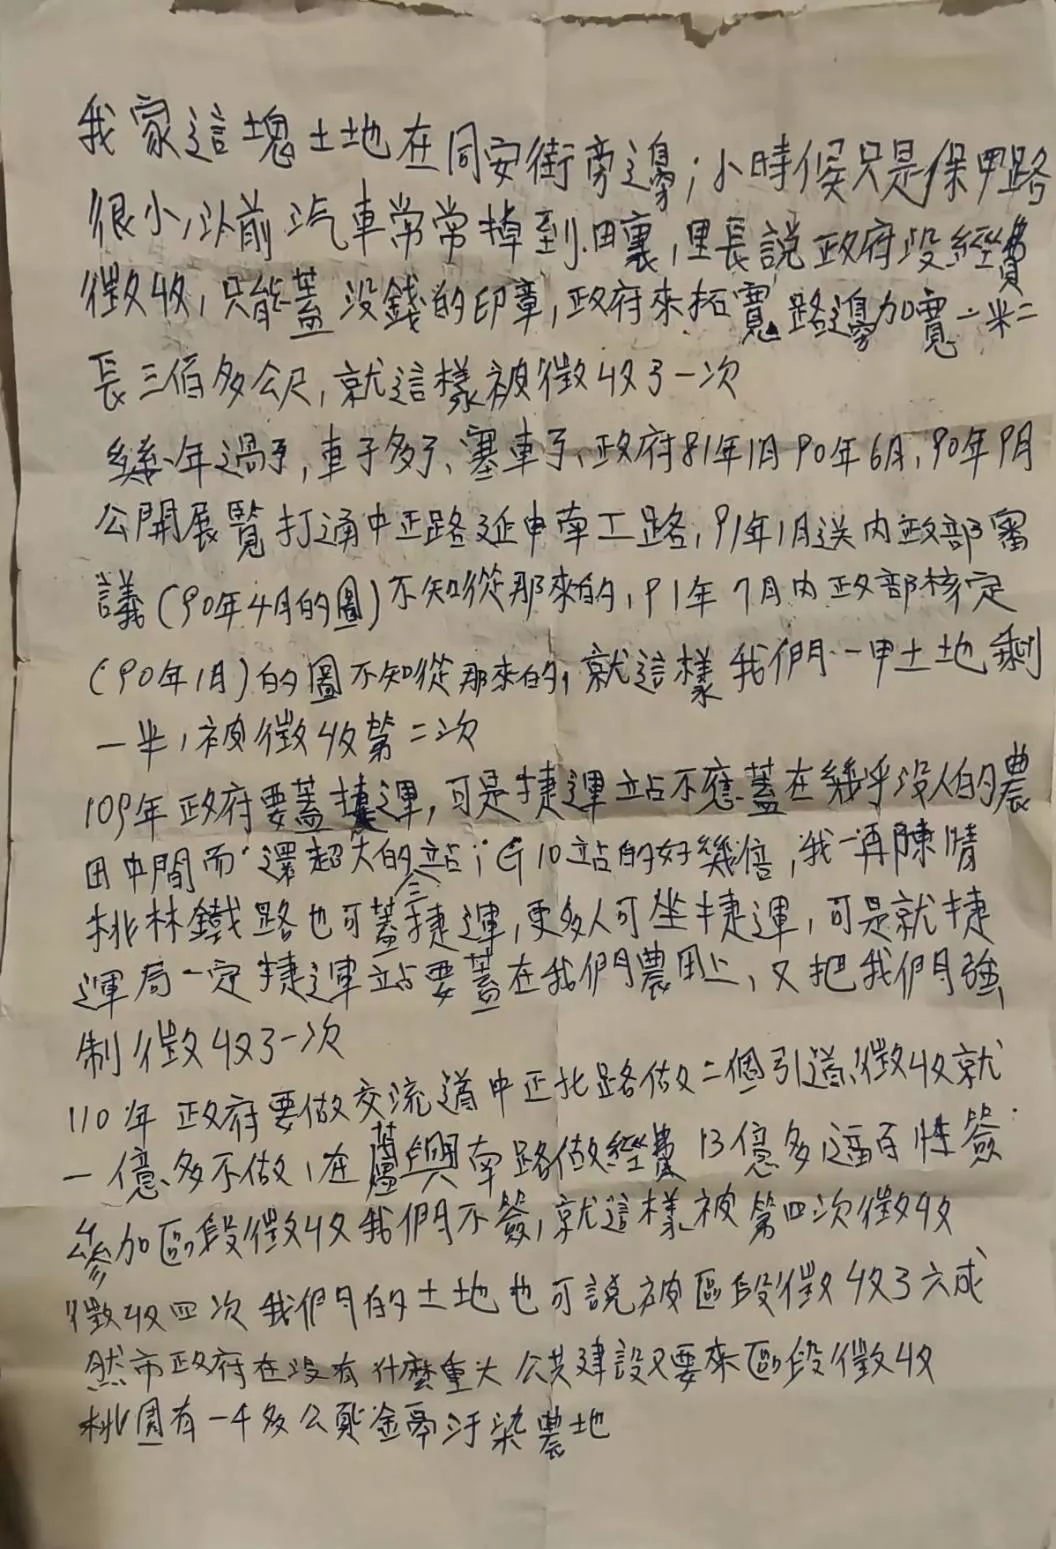 我家這塊土地在同安街旁邊；小時候只是保甲路
很小，以前汽車常常掉到田裏，里長說政府没經費
徵收，只能蓋没錢的印章，政府來拓寬路邊加寬二米二
長三佰多公尺，就這樣被徵收了一次
幾年過了，車子多了、塞車了、政府81年1月90年6月，90年9月
公開展覽打通中正路延申南工路，91年1月送内政部審
議(90年4月的圖)不知從那來的，91年7月内政部核定
(90年1月)的圖不知從那來的，就這樣我們一甲土地剩
一半，被徵收第二次
109年政府要蓋捷運，可是捷運站不應蓋在幾乎没人的農
田中間而還超大的站；G10站的好幾倍，我一再陳情
桃林鐵路也可蓋捷運，更多人可坐捷運，可是就捷
運局一定捷運站要蓋在我們農田上，又把我們強
制徵收了一次
110年政府要做交流道中正北路做二個引道，徵收就
一億多不做，在蘆興南路做經費13億多逼百姓簽
參加區段徵收我們不簽，就這樣被第四次徵收
徵收四次我們的土地也可說被區段徵收了六成
然市政府在没有什麼重大公共建設又要來區段徵收
桃園有一千多公頃金鬲汙染農地